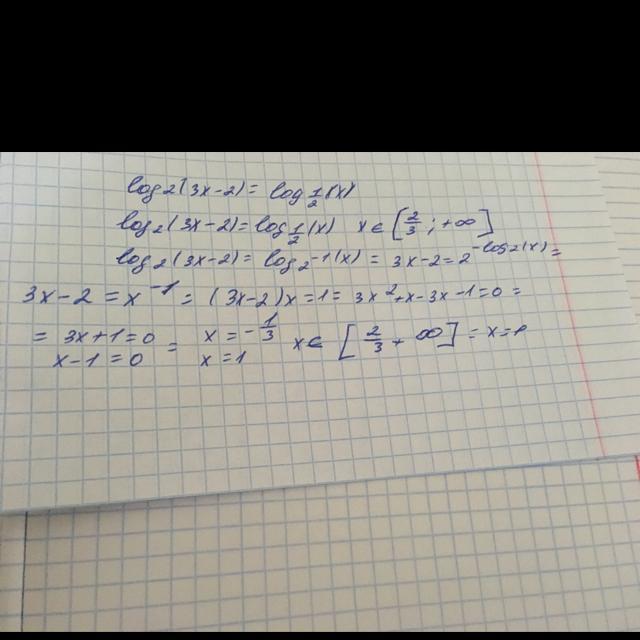 log₂(3x-2) = log_{1/2}(x)
log₂(3x-2) = log_{1/2}(x) x ∈ [2/3; +∞]
log₂(3x-2) = log_{2^{-1}}(x) = 3x-2 = 2^{-log₂(x)} =
3x-2 = x^{-1} = (3x-2)x = 1 = 3x²+x-3x-1=0 =
= 3x+1=0 = x = -1/3 x ∈ [2/3 + ∞] = x =
x-1=0 x=1